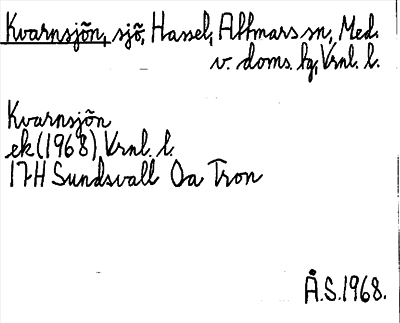 Kvarnsjön, sjö, Hassel, Attmars sn, Med.
v. doms. hg, Vrnl. l.
Kvarnsjön
ek (1968) Vrnl. l.
17H Sundsvall Oa Tron
Å.S. 1968.